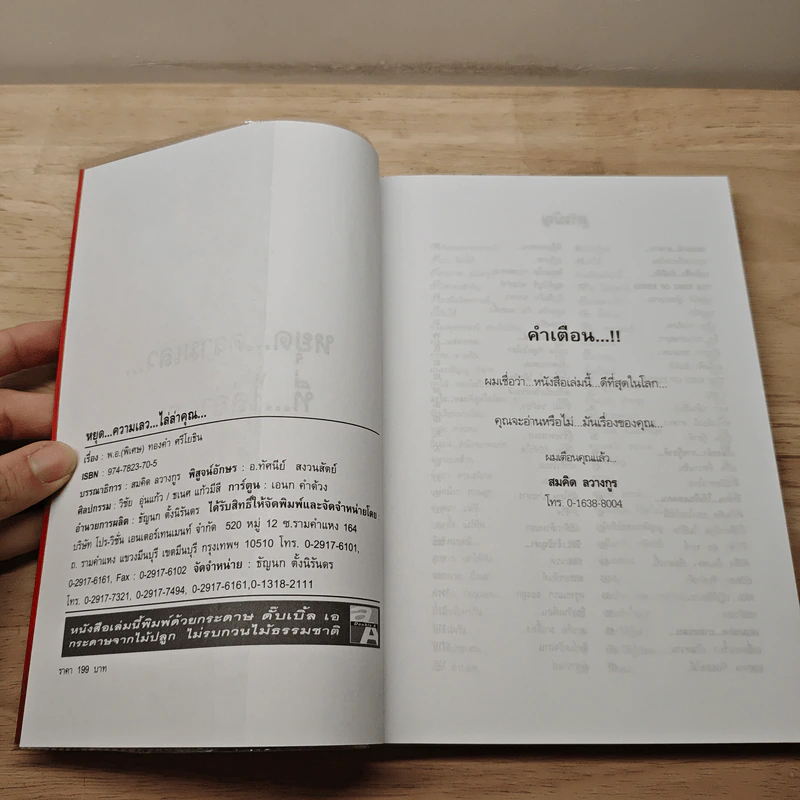 หยุด...ความเลว...ไล่ล่าคุณ...
เรื่อง : พ.อ.(พิเศษ) ทองคำ ศรีโยธิน
ISBN : 974-7823-70-5
บรรณาธิการ : สมคิด ลวางกูร พิสูจน์อักษร : อ.ทัศนีย์ สงวนสัตย์
ศิลปกรรม : วิชัย อุ่นแก้ว / ธเนศ แก้วมีสี การ์ตูน : เอนก คำด้วง
อำนวยการผลิต : ธัญนก ตั้งนิรันดร ได้รับสิทธิ์ให้จัดพิมพ์และจัดจำหน่ายโดย :
บริษัท โปร-วิชั่น เอนเตอร์เทนเมนท์ จำกัด 520 หมู่ 12 ซ.รามคำแหง 164
ถ. รามคำแหง แขวงมีนบุรี เขตมีนบุรี กรุงเทพฯ 10510 โทร. 0-2917-6101,
0-2917-6161, Fax : 0-2917-6102 จัดจำหน่าย : ธัญนก ตั้งนิรันดร
โทร. 0-2917-7321, 0-2917-7494, 0-2917-6161,0-1318-2111
หนังสือเล่มนี้พิมพ์ด้วยกระดาษ ดั๊บเบิ้ล เอ
กระดาษจากไม้ปลูก ไม่รบกวนไม้ธรรมชาติ
Double A
ราคา 199 บาท
คำเตือน...!!
ผมเชื่อว่า...หนังสือเล่มนี้...ดีที่สุดในโลก...
คุณจะอ่านหรือไม่...มันเรื่องของคุณ...
ผมเตือนคุณแล้ว...
สมคิด ลวางกูร
โทร. 0-1638-8004